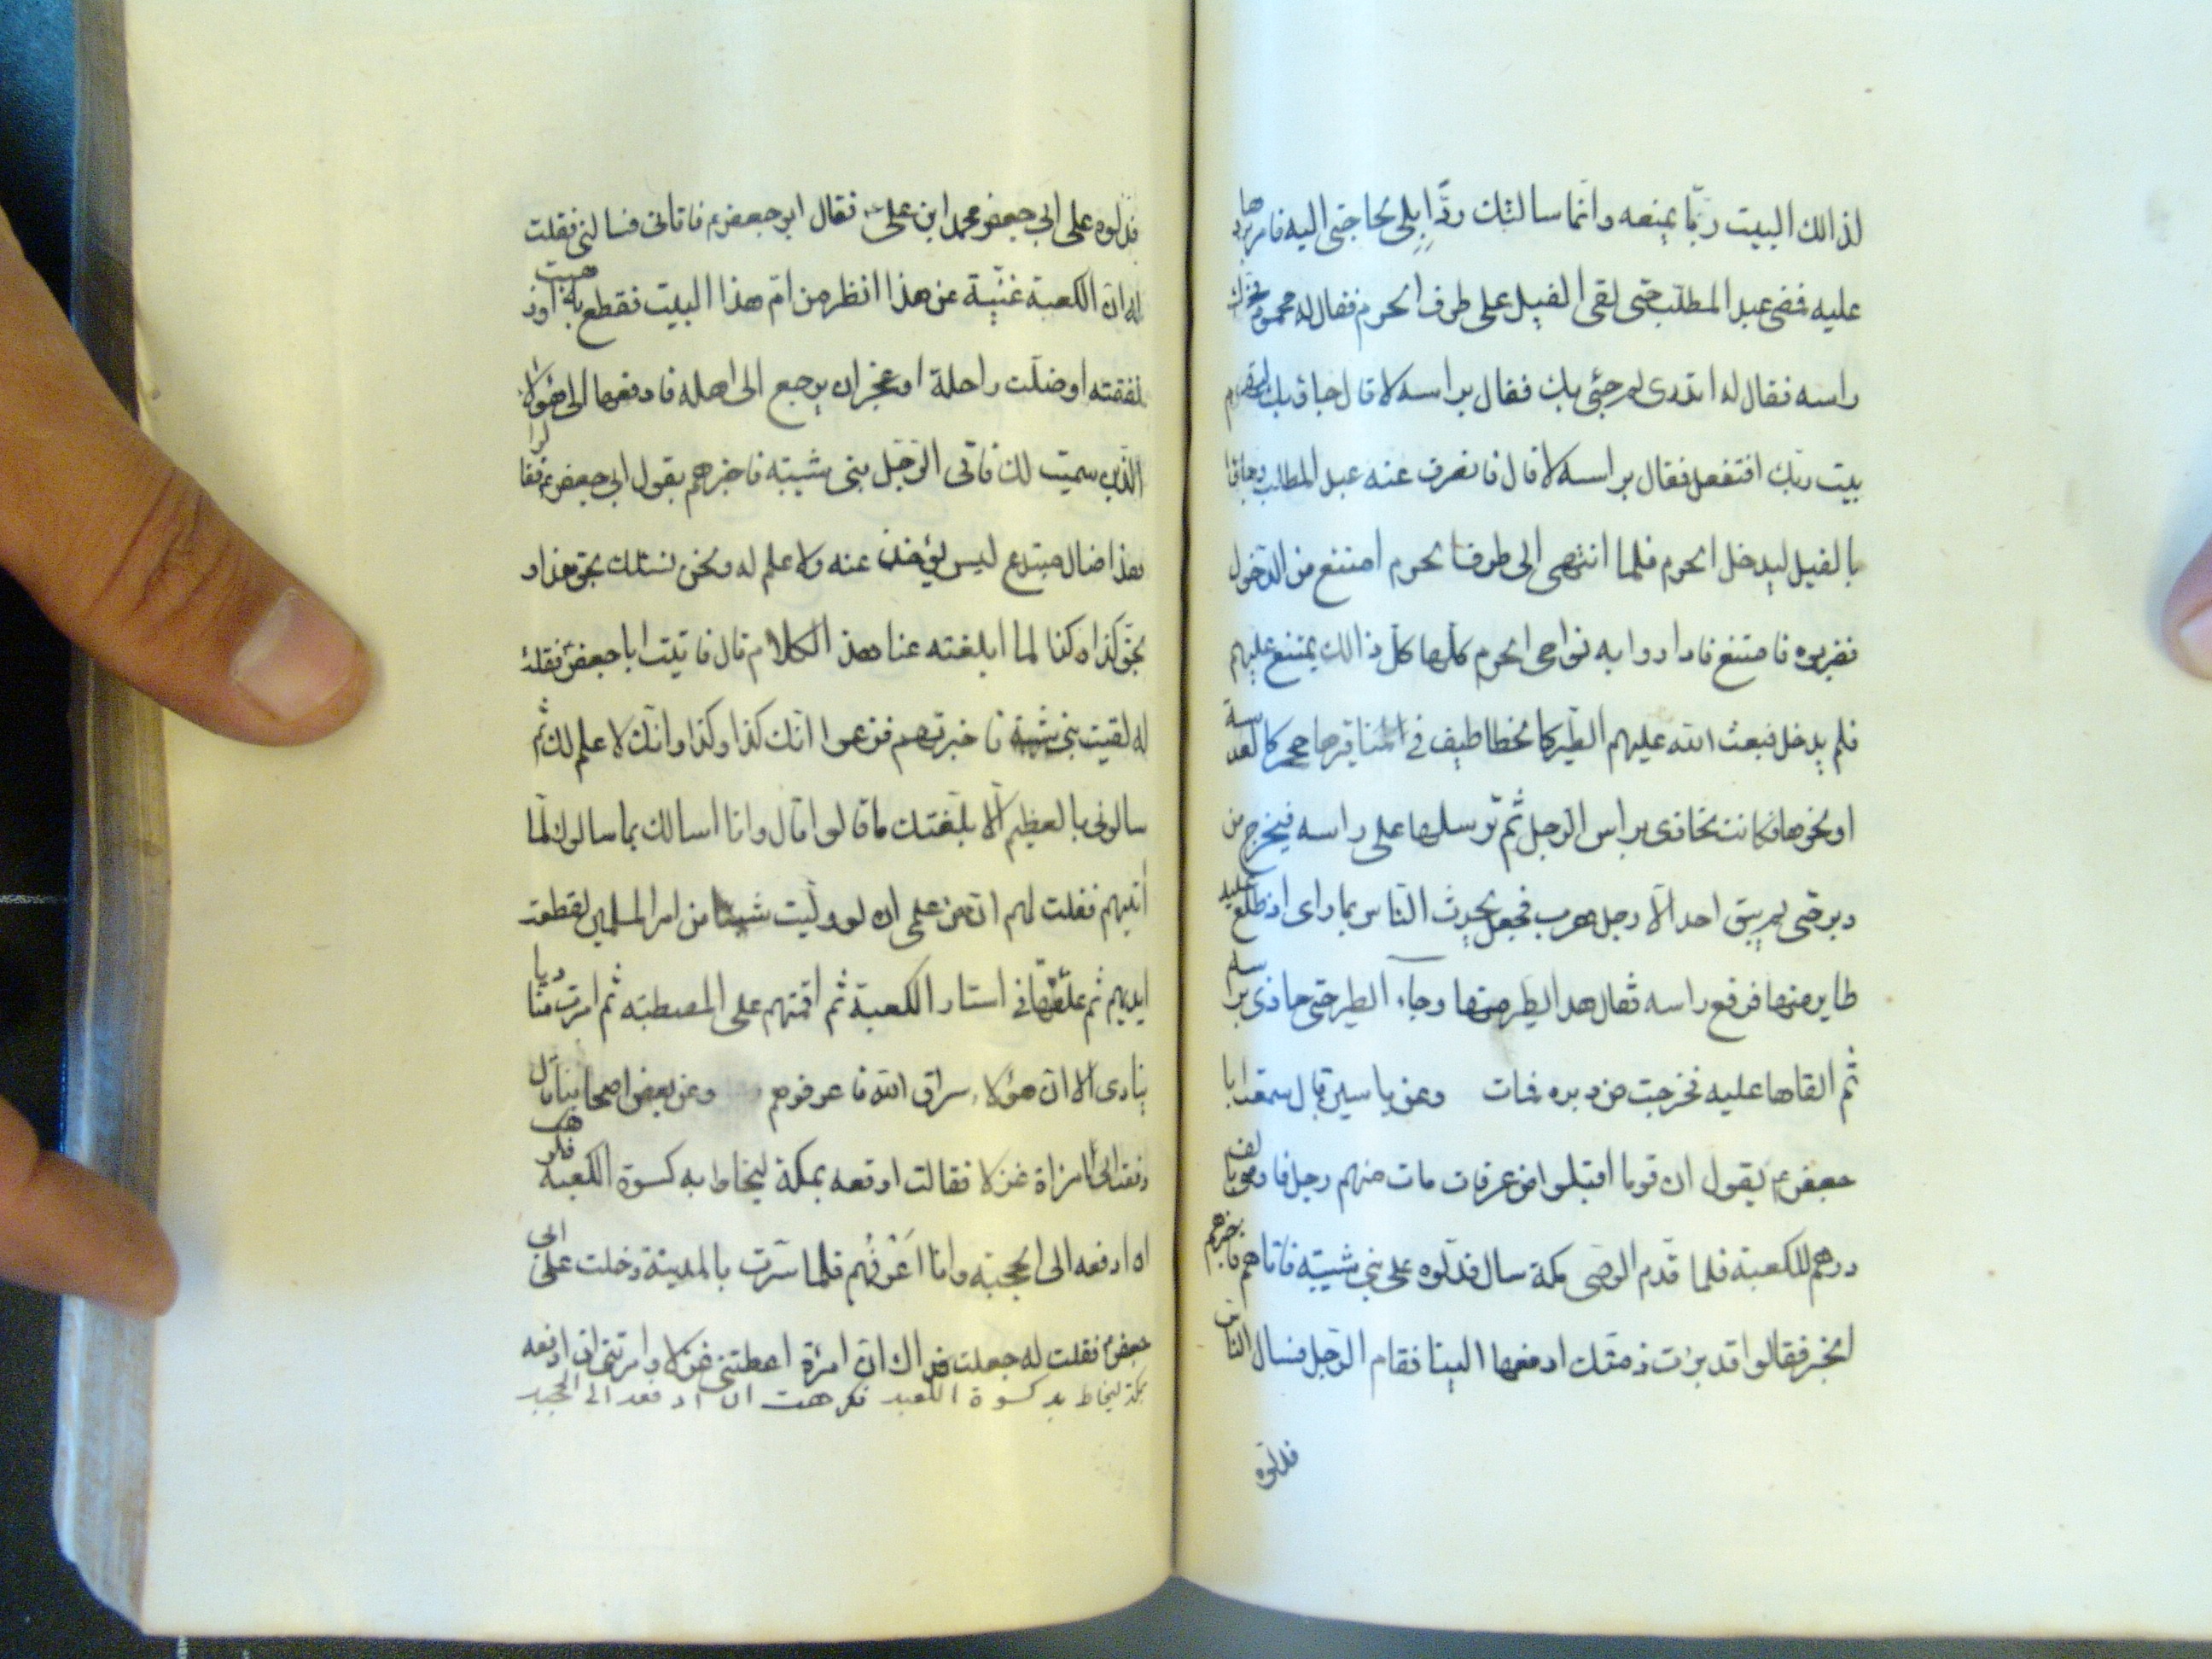 لذالك البيت ربّا يمنعه وانّما سالتك ردّ ابلى لحاجتى اليه فامر بردها
عليه فمضى عبد المطلب حتى لقى الفيل على طرف الحرم فقال له محمود فحرك
راسه فقال له اتدرى لم جئ بك فقال براسه لا قال جاؤبك لتهدم
بيت ربّك افتفعل فقال براسه لا قال فانصرف عنه عبد المطلب وجاؤا
بالفيل ليدخل الحرم فلما انتهى الى طرف الحرم امتنع من الدخول
فضربوه فامتنع فاداروا به نواحى الحرم كلّها كلّ ذالك يمتنع عليهم
فلم يدخل فبعث الله عليهم الطّير كالخطاطيف فى مناقيرها حجر كالعدسة
او نحوها فكانت تحاذى براس الرّجل ثمّ ترسلها على راسه فيخرج من
دبره حتى لم يبق احد الّا رجل هرب فجعل يحدث النّاس بما راى اذ طلع عليه
طاير منها فرفع راسه فقال هذا الطير منها وجاء الطير حتى حاذى براسه
ثمّ القاها عليه فخرجت من دبره فمات وعن ياسين قال سمعت ابا
جعفر ع يقول ان قوما اقبلوا من عرفات مات منهم رجل فاوصى بالف
درهم للكعبة فلما قدم الوصى مكة سال فدلّوه على بنى شيبة فاتاهم فاخبرهم
الخبر فقالوا قد برئت ذمتك ادفعها الينا فقام الرّجل فسال النّاس
فدلّوه
فدلوه على ابى جعفر محمد ابن على ع فقال ابو جعفر ع فاتانى فسالنى فقلت
له ان الكعبة غنيّة عن هذا انظر من امّ هذا البيت فقطع به او ذهبت
نفقته او ضلّت راحلة او عجز ان يرجع الى اهله فادفعها الى هؤلاء
الّذين سميت لك فاتى الرّجل بنى شيبة فاخبرهم بقول ابى جعفر ع فقالوا
هذا ضال مبتدع ليس يؤخذ عنه ولا علم له ونحن نسئلك بحق هذا و
بحقّ كذا وكذا لما ابلغته عنا هذا الكلام قال فاتيت ابا جعفر ع فقلت
له لقيت بنى شيبة فاخبرتهم فزعموا انّك كذا وكذا وانّك لا علم لك ثمّ
سالونى بالعظيم الّا بلّغتك ما قالوا قال وانا اسالك بما سالوك لمّا
اتيهم فقلت لهم انّ من علمى ان لو ولّيت شيئا من امر المسلمين لقطعت
ايديهم ثم علقتها فى استار الكعبة ثم اقمتهم على المصطبة ثم امرت مناديا
ينادى الا ان هؤلاء سراق الله فاعرفوهم وعن بعض اصحابنا قال
دفعت الى امراة غزلا فقالت ادفعه بمكة ليخاط به كسوة الكعبة فكرهت
ان ادفعه الى الحجبة وانا اعرفهم فلما سرت بالمدينة دخلت على ابى
جعفر ع فقلت له جعلت فداك ان امرئة اعطتنى غزلا وامرتنى ان ادفعه
بمكة ليخاط به كسوة الكعبة فكرهت ان ادفعه الى الحجبة